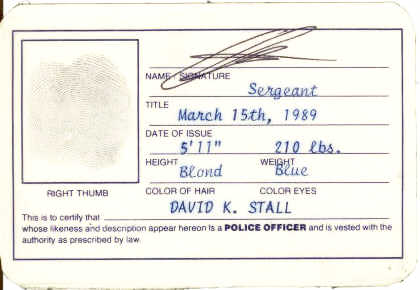 NAME - SIGNATURE
Sergeant
TITLE
March 15th, 1989
DATE OF ISSUE
5'11" 210 lbs.
HEIGHT WEIGHT
Blond Blue
COLOR OF HAIR COLOR EYES
RIGHT THUMB
DAVID K. STALL
This is to certify that
whose likeness and description appear hereon Is a POLICE OFFICER and is vested with the
authority as prescribed by law.